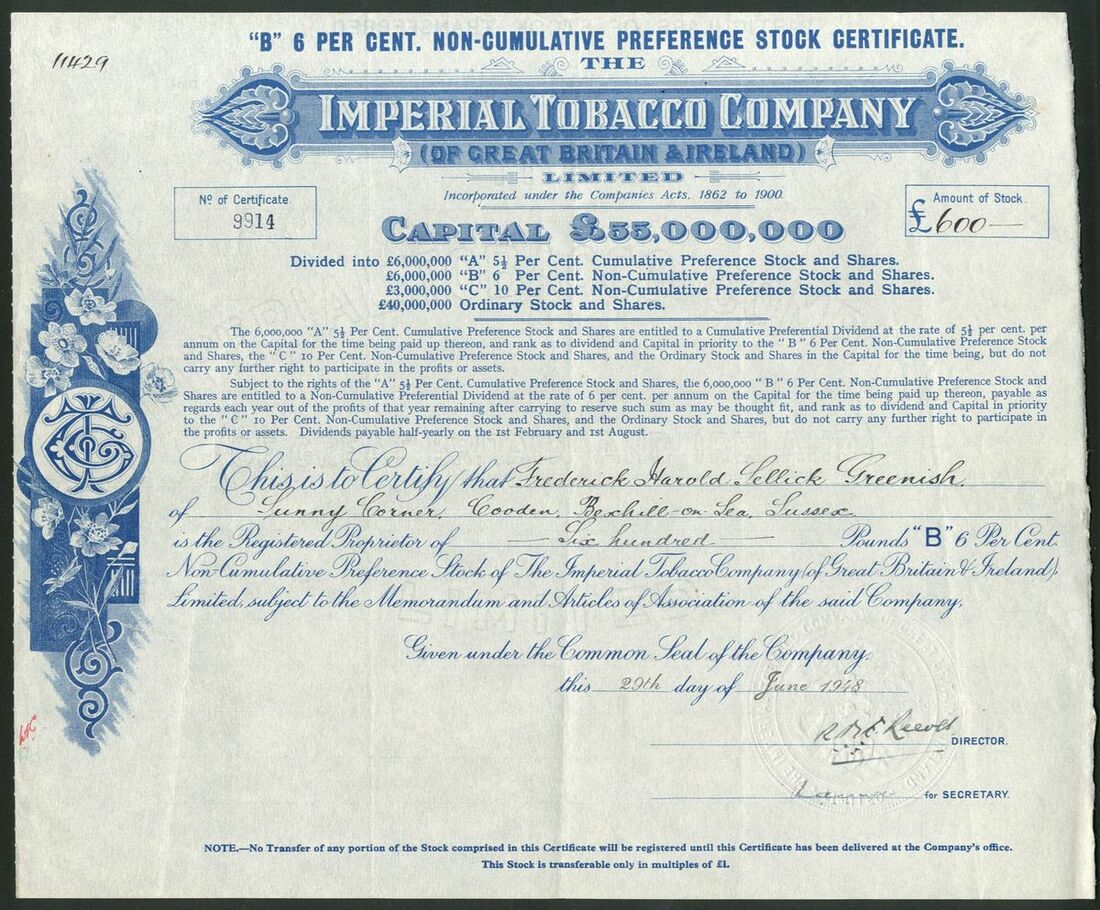 "B" 6 PER CENT. NON-CUMULATIVE PREFERENCE STOCK CERTIFICATE.
11429
THE
IMPERIAL TOBACCO COMPANY
(OF GREAT BRITAIN & IRELAND)
LIMITED
Incorporated under the Companies Acts, 1862 to 1900.
No of Certificate.
9914
Amount of Stock.
£600—
CAPITAL £55,000,000
Divided into £6,000,000 "A" 5½ Per Cent. Cumulative Preference Stock and Shares.
£6,000,000 "B" 6 Per Cent. Non-Cumulative Preference Stock and Shares.
£3,000,000 "C" 10 Per Cent. Non-Cumulative Preference Stock and Shares.
£40,000,000 Ordinary Stock and Shares.
The 6,000,000 "A" 5½ Per Cent. Cumulative Preference Stock and Shares are entitled to a Cumulative Preferential Dividend at the rate of 5½ per cent. per
annum on the Capital for the time being paid up thereon, and rank as to dividend and Capital in priority to the "B" 6 Per Cent. Non-Cumulative Preference Stock
and Shares, the "C" 10 Per Cent. Non-Cumulative Preference Stock and Shares, and the Ordinary Stock and Shares in the Capital for the time being, but do not
carry any further right to participate in the profits or assets.
Subject to the rights of the "A" 5½ Per Cent. Cumulative Preference Stock and Shares, the 6,000,000 "B" 6 Per Cent. Non-Cumulative Preference Stock and
Shares are entitled to a Non-Cumulative Preferential Dividend at the rate of 6 per cent. per annum on the Capital for the time being paid up thereon, payable as
regards each year out of the profits of that year remaining after carrying to reserve such sum as may be thought fit, and rank as to dividend and Capital in priority
to the "C" 10 Per Cent. Non-Cumulative Preference Stock and Shares, and the Ordinary Stock and Shares, but do not carry any further right to participate in
the profits or assets. Dividends payable half-yearly on the 1st February and 1st August.
This is to Certify that Frederick Harold Sellick Greenish,
of Sunny Corner, Cooden, Bexhill-on-Sea, Sussex
is the Registered Proprietor of — Six hundred — Pounds "B" 6 Per Cent
Non-Cumulative Preference Stock of The Imperial Tobacco Company (of Great Britain & Ireland),
Limited, subject to the Memorandum and Articles of Association of the said Company.
Given under the Common Seal of the Company.
this 29th day of June 1948
DIRECTOR.
for SECRETARY.
NOTE.—No Transfer of any portion of the Stock comprised in this Certificate will be registered until this Certificate has been delivered at the Company's office.
This Stock is transferable only in multiples of £1.